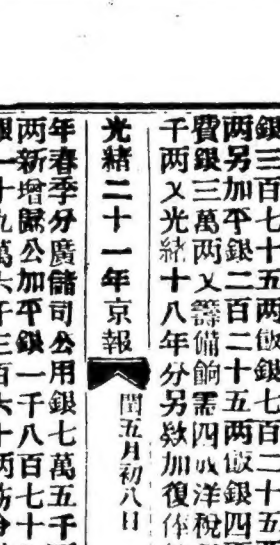 銀三百七十五两飯銀七百二十五
两另加平銀二百二十五两飯銀四
費銀三萬两又籌備餉需四成洋稅
千两又光緒十八年分另欵加復俸
光緒二十一年京報
閏五月初八日
年春季分廣儲司公用銀七萬五千
两新增歸公加平銀一千八百七十
銀一十九萬六千三百六十两